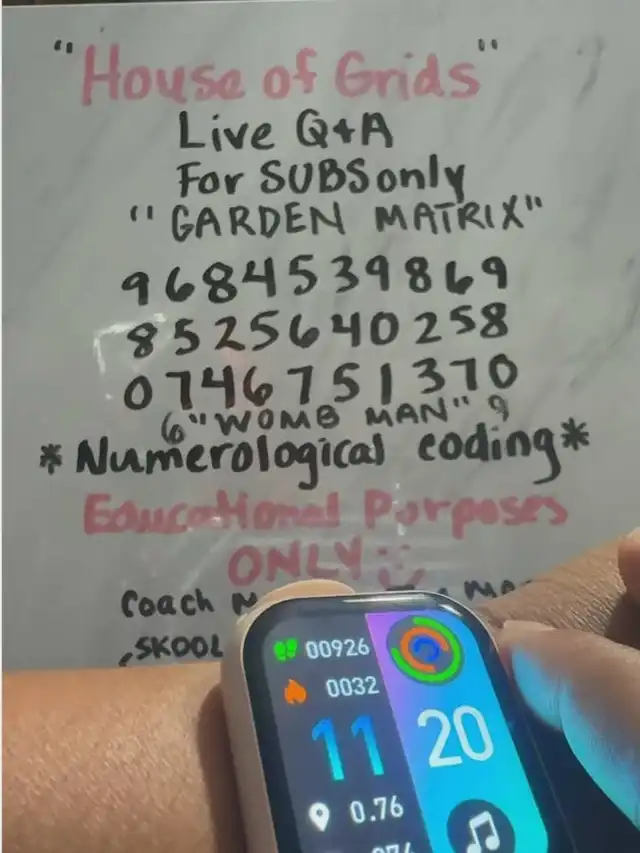 "House of Grids"
Live Q+A
For SUBS only
"GARDEN MATRIX"
9684539869
8525640258
0746751370
6 "WOMB MAN" 9
*Numerological coding*
Educational Purposes
ONLY
Coach
SKOOL
00926
0032
11 20
0.76